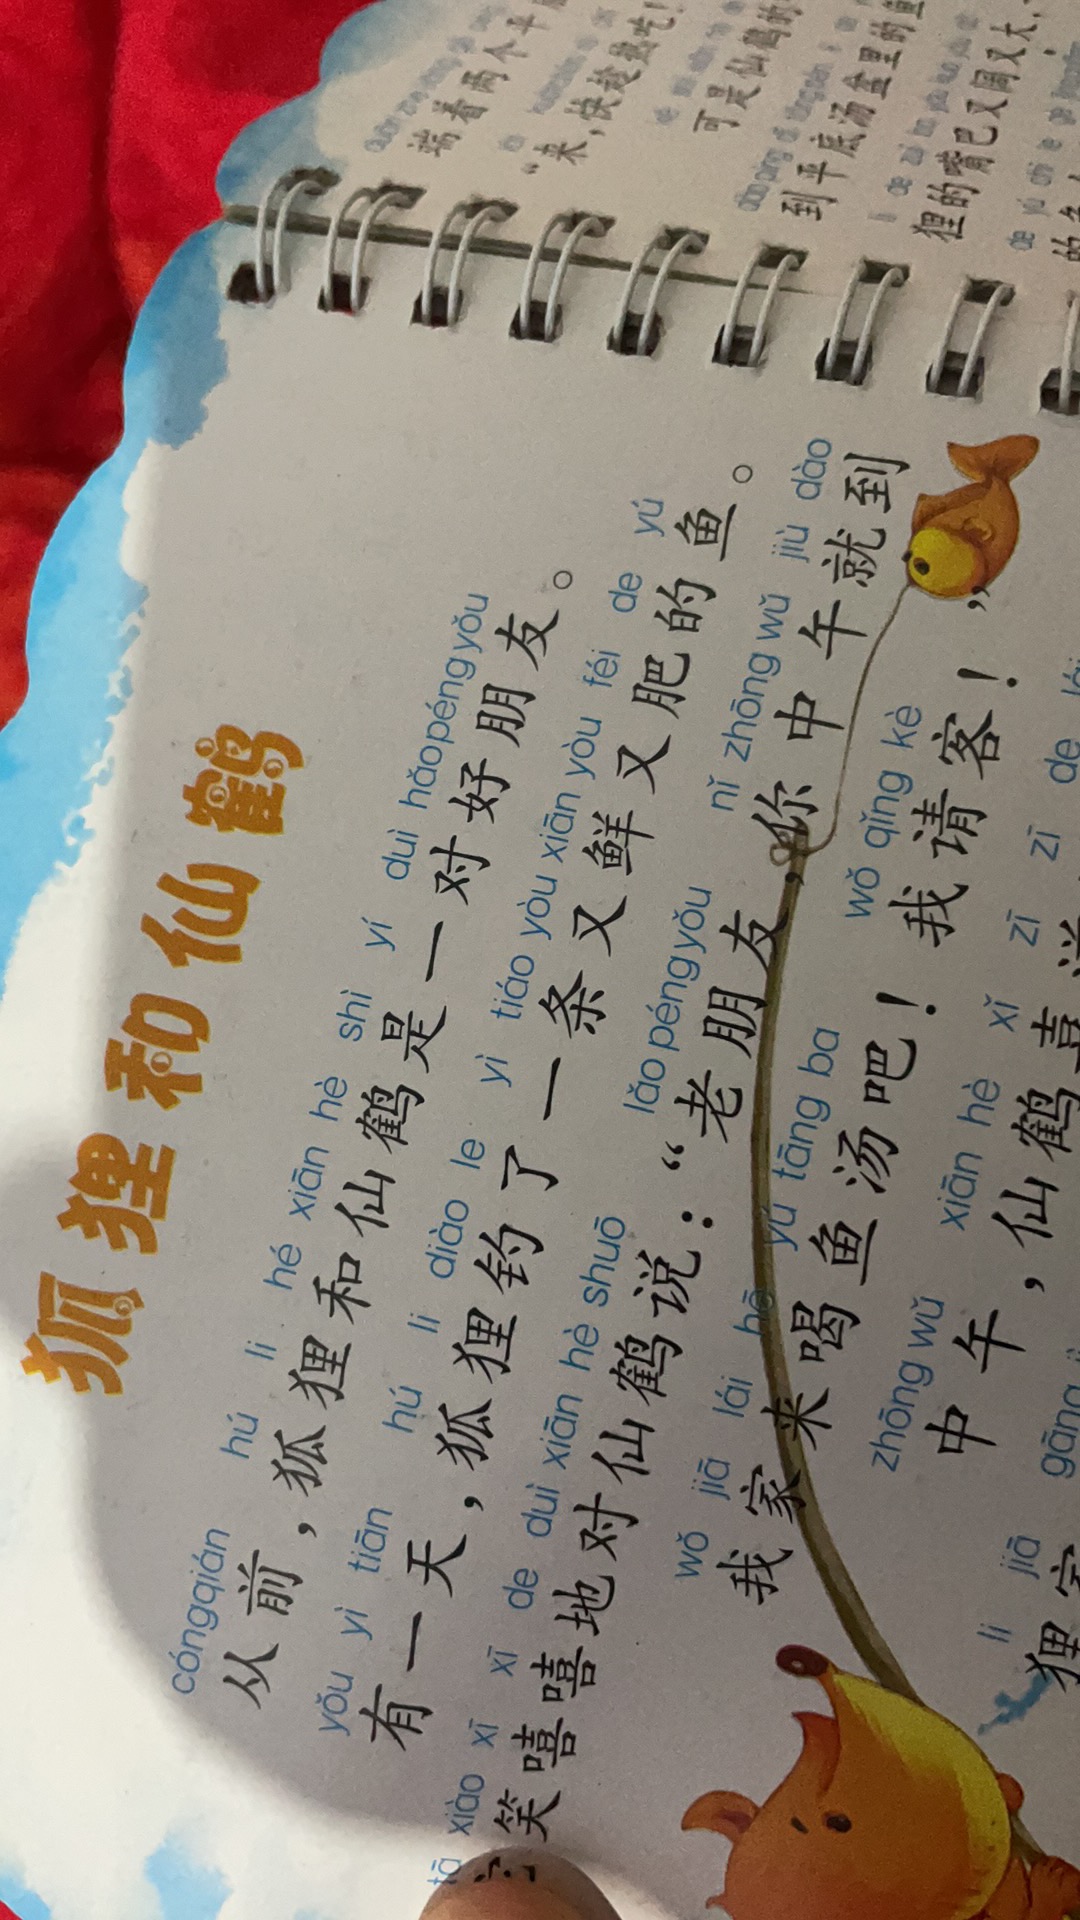 狐狸和仙鹤
cóngqián hú li hé xiān hè shì yí duì hǎopéngyǒu
从前，狐狸和仙鹤是一对好朋友。
yǒu yì tiān hú li diào le yì tiáo yòu xiān yòu féi de yú
有一天，狐狸钓了一条又鲜又肥的鱼。
tā xiào xī xī de duì xiān hè shuō lǎopéngyǒu nǐ zhōngwǔ jiù dào
笑嘻嘻地对仙鹤说：“老朋友，你中午就到
wǒ jiā lái hē yú tāng ba wǒ qǐng kè
我家来喝鱼汤吧！我请客！”
zhōngwǔ xiān hè xǐ zī zī de lái
中午，仙鹤喜滋
li jiā gāng
狸家
端着两个平
“来，快趁热吃！
可是仙鹤的
到平底汤盘里的鱼
狸的嘴巴又阔又大，
de yú chī
的鱼